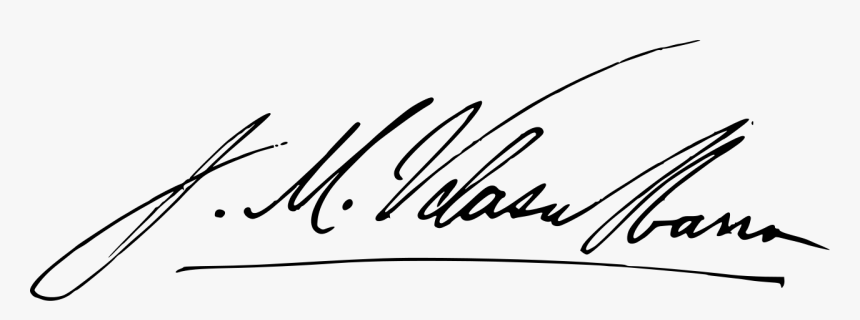 J. M. Velasco Ibarra